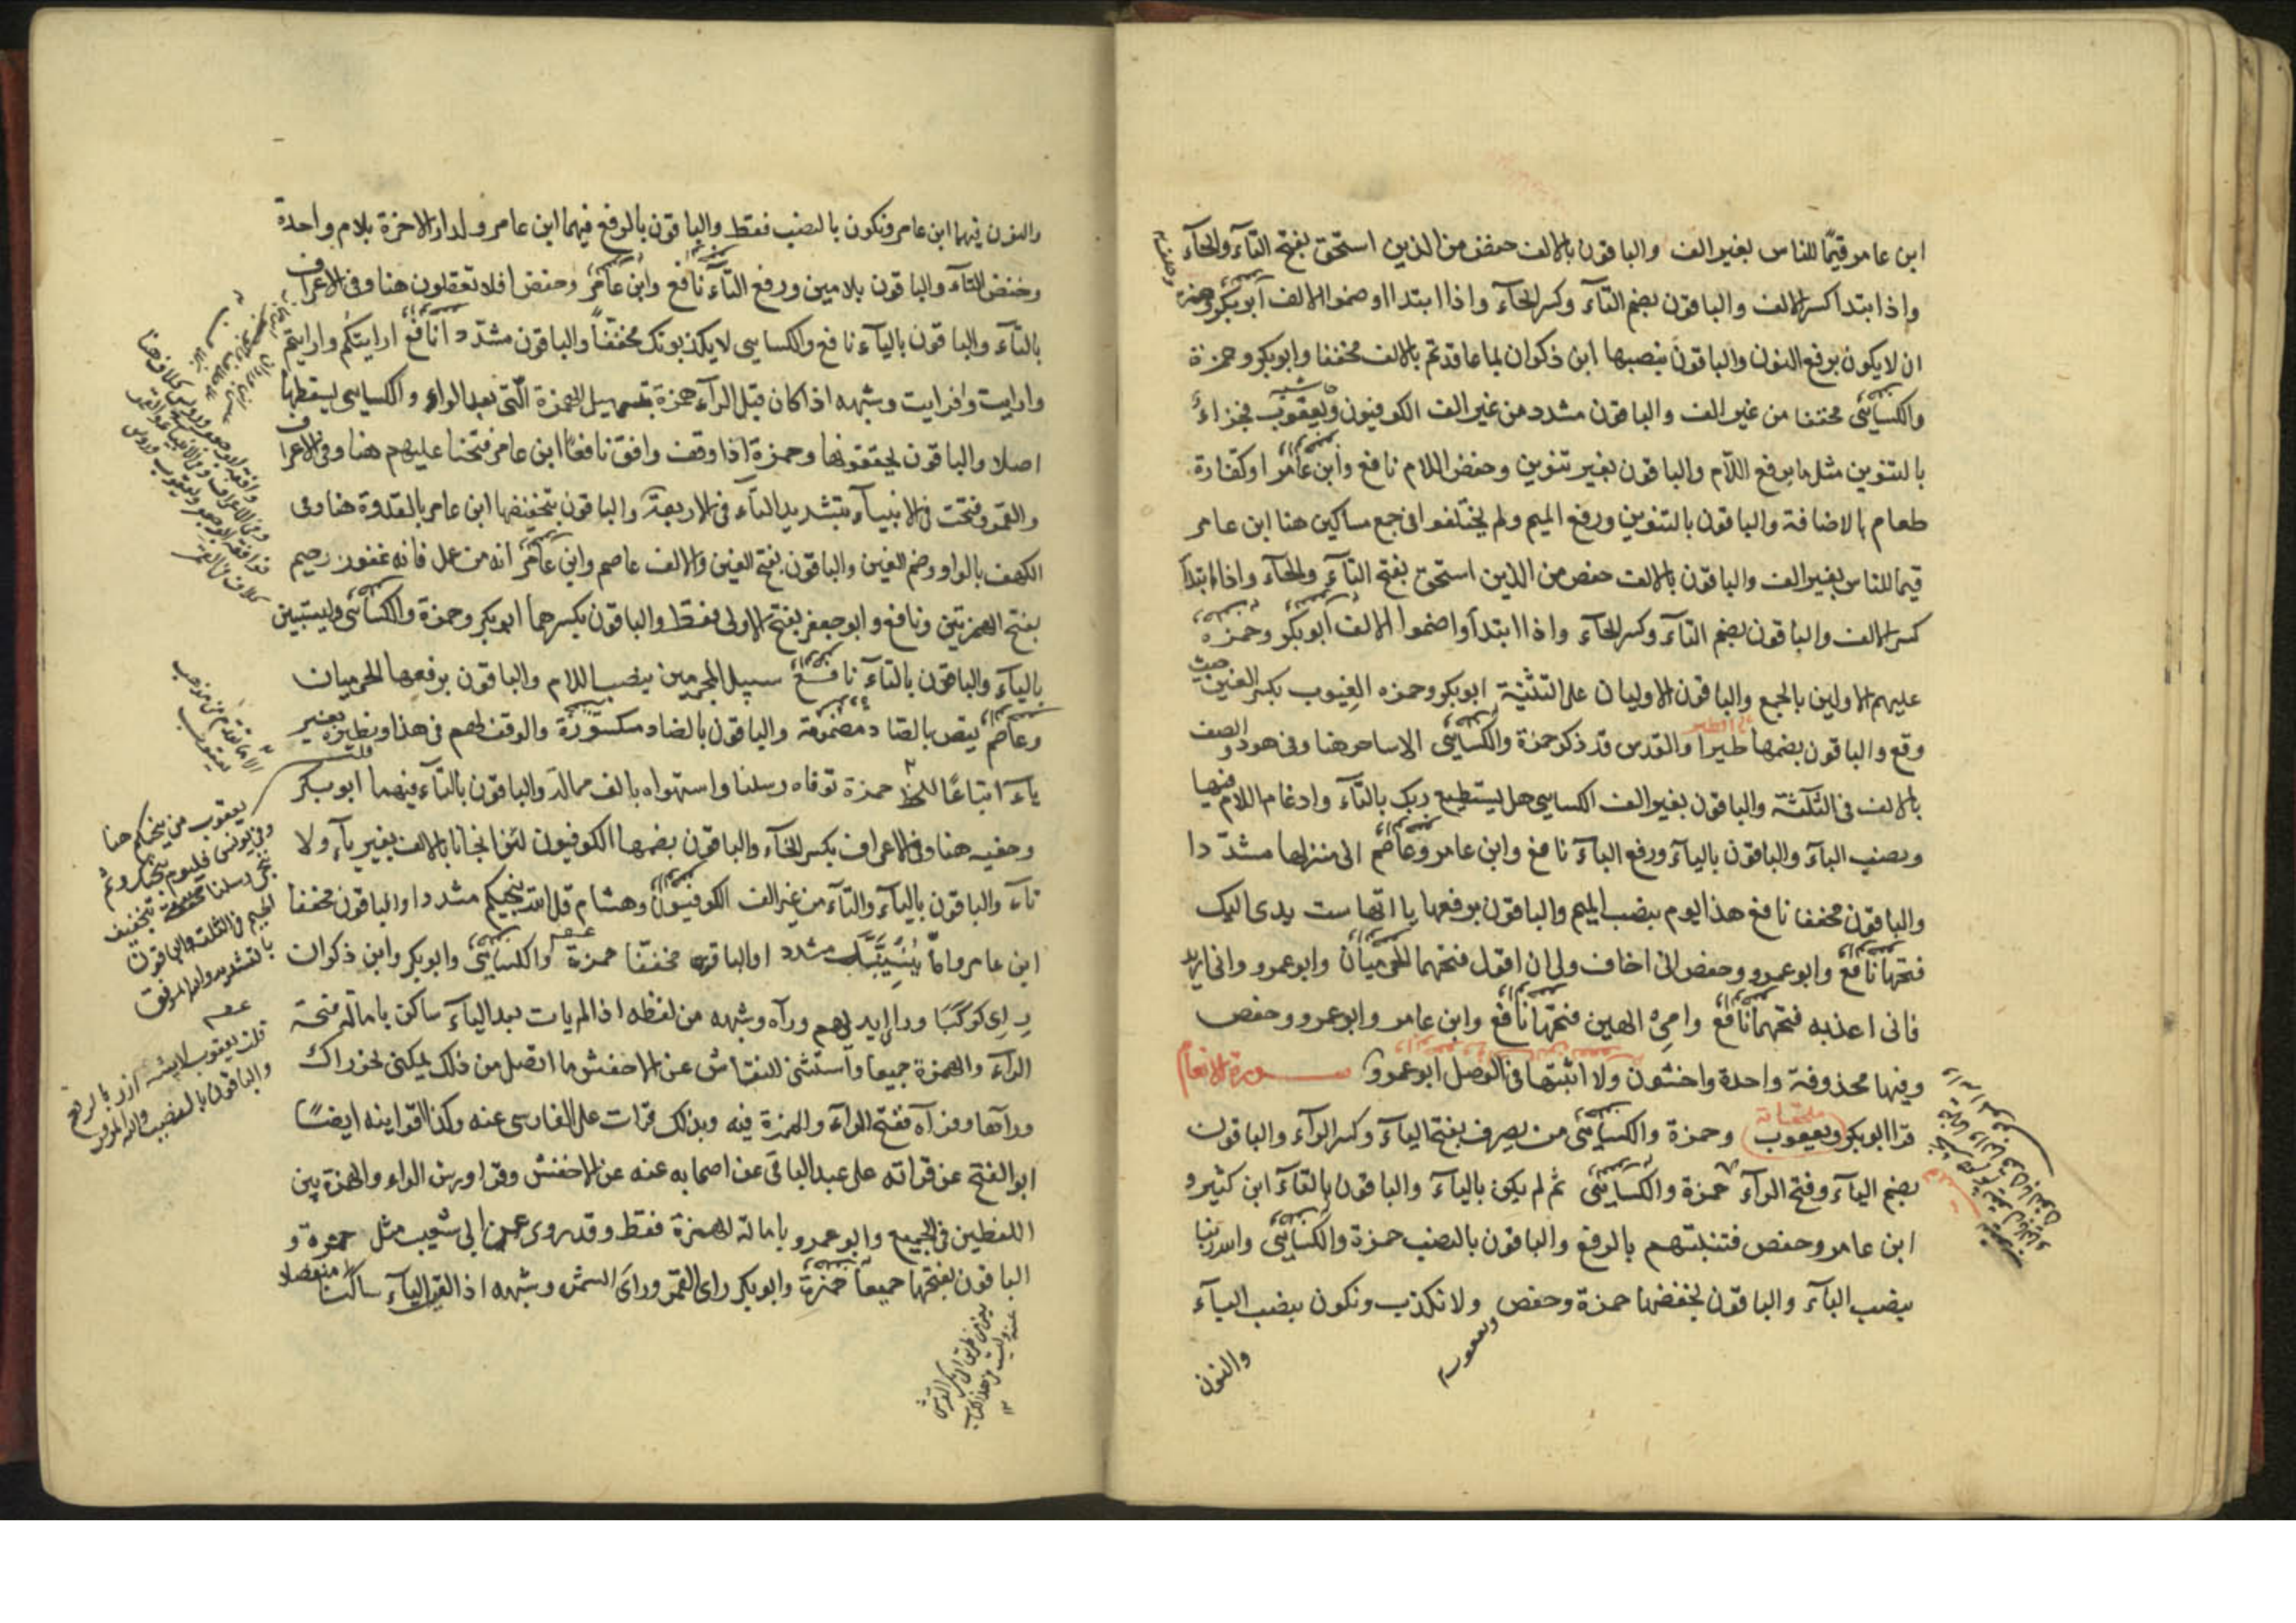 ابن عامر قيمًا للناس بغير الف والباقون بالالف حفص من الذين استحق بفتح التآء والحآء
واذا ابتدا كسر الالف والباقون بضم التآء وكسر الحآء واذا ابتداا وضموا الالف ابوبكر وحمزة
ان لا يكون برفع النون والباقون بنصبها ابن ذكوان بما عاقدتم بالالف مخففا وابوبكر وحمزة
والكسايى مخففا من غير الف والباقون مشدد من غير الف الكوفيون ويعقوب فجزاءٌ
بالتنوين مثل ما برفع اللآم والباقون بغير تنوين وخفض اللام نافع وابن عامر اوكفارة
طعام بالاضافة والباقون بالتنوين ورفع الميم ولم يختلفوا فى جمع مساكين هنا ابن عامر
قيما للناس بغير الف والباقون بالالف حفص من الذين استحق بفتح التآء والحآء واذا ابتدأ
كسر الالف والباقون بضم التآء وكسر الحآء واذا ابتدأوا ضموا الالف ابوبكر وحمزه
عليهم الاولين بالجمع والباقون الاوليان على التثنية ابوبكر وحمزه الغِيوب بكسر الغين حيث
وقع والباقون بضمها طيرا والقدس قد ذكر حمزة والكسايى الا ساحر هنا وفى هود والصف
بالالف فى الثلثة والباقون بغير الف الكسايى هل يستطيع ربك بالتآء وادغام اللام فيها
وبنصب البآء والباقون باليآء ورفع البآء نافع وابن عامر وعاصم انى منزلها مشدّدا
والباقون مخففا نافع هذا يوم بنصب الميم والباقون برفعها يااتها ست يدى اليك
فتحها نافع وابوعمرو وحفص انى اخاف ولى ان اقول فتحهما الحرميان وابوعمرو وانى اريد
فانى اعذبه فتحهما نافع وامى الهين فتحها نافع وابن عامر وابوعمرو وحفص
وفيها محذوفة واحدة واخشون ولا اثبتها فى الوصل ابوعمرو سورة الانعام
قرا ابوبكر ويعقوب وحمزة والكسايى من يصرف بفتح اليآء وكسر الرآء والباقون
بضم اليآء وفتح الرآء حمزة والكسايى ثم لم يكن باليآء والباقون بالتآء ابن كثير و
ابن عامر وحفص فتنتهم بالرفع والباقون بالنصب حمزة والكسايى والله ربنا
بنصب البآء والباقون بخفضها حمزة وحفص ولا نكذب ونكون بنصب البآء
ويعقوب
والنون
والنون فيهما ابن عامر ونكون بالنصب فقط والباقون بالرفع فيهما ابن عامر ولدار الاخرة بلام واحدة
وخفض التآء والباقون بلامين ورفع التآء نافع وابن عامر وحفص افلا تعقلون هنا وفى الاعراف
بالتآء والباقون باليآء نافع والكسايى لا يكذبونك مخففاً والباقون مشددا نافع ارايتكم وارايتم
وارايت وافرايت وشبهه اذا كان قبل الرآء همزة بتسهيل الهمزة الّتى بعد الراء والكسايى يسقطها
اصلا والباقون يحققونها وحمزة اذا وقف وافق نافعًا ابن عامر فتحنا عليهم هنا وفى الاعراف
والقمر وفتحت فى الانبيآء بتشديد التآء فى الاربعة والباقون بتخفيفها ابن عامر بالغدوة هنا وفى
الكهف بالواو وضم الغين والباقون بفتح الغين والالف عاصم وابن عامر انه من عمل فانه غفور رحيم
بفتح الهمزتين ونافع وابوجعفر بفتح الاولى فقط والباقون بكسرهما ابوبكر وحمزة والكسايى وليستبين
باليآء والباقون بالتآء نافع سبيل المجرمين بنصب اللام والباقون برفعها الحرميان
وعاصم يقص بالصاد مضمومة والباقون بالضاد مكسورة والوقف لهم فى هذا ونظيره بغير
يآء اتباعًا للخط حمزة توفاه رسلنا واستهواه بالف ممالة والباقون بالتآء فيهما ابوبكر
وخفيه هنا وفى الاعراف بكسر الخآء والباقون بضمها الكوفيون لئن انجانا بالالف بغير يآء ولا
تآء والباقون باليآء والتآء من غير الف الكوفيون وهشام قل الله ينجيكم مشددا والباقون مخففا
ابن عامر واماّ ينسِيَنَّكَ مشددا والباقون مخففّا حمزة والكسايى وابوبكر وابن ذكوان
رِاى كوكبًا وراى ايديهم ورآه وشبهه من لفظه اذا لم يات بعد اليآء ساكن بامالة فتحة
الرآء والهمزة جميعا واستثنى النقاش عن الاخفش ما اتصل من ذلك بمكنى نحو راك
ورآها وفرآه ففتح الرآء والهمزة فيه وبذلك قرات على الفارسى عنه وكذا اقراينه ايضًا
ابو الفتح عن قراته على عبد الباقى عن اصحابه عنه عن الاخفش وقرا ورش الراء والهمزة بين
اللفظين فى الجميع وابوعمرو بامالة الهمزة فقط وقد روى عن ابى شعيب مثل حمزة و
الباقون بفتحها جميعا حمزة وابوبكر راى القمر وراى الشمس وشبهه اذا لقى اليآء ساكنا منفصلا
يعقوب من ينجيكم هنا
وفى يونس فاليوم ننجيك وثم
ننجى رسلنا
بتخفيف
الجيم فى الثلثة والباقون
بالتشديد والله الموفق
قلت يعقوب لابيه ازر بالرفع
والباقون بالنصب والله الموفق